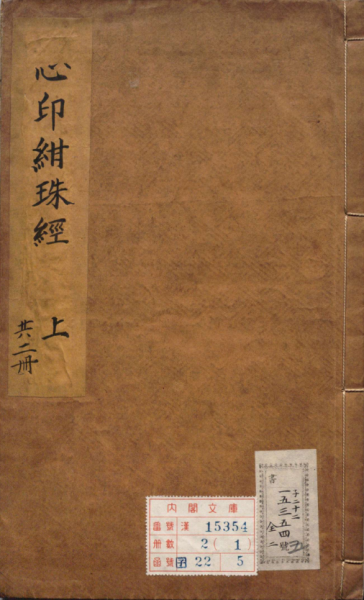 心印紺珠經 上
共二冊
內閣文庫
番號 漢 15354
冊數 2(1)
函號 子 22 5
書
子二十二
一五三五四號
全二
五